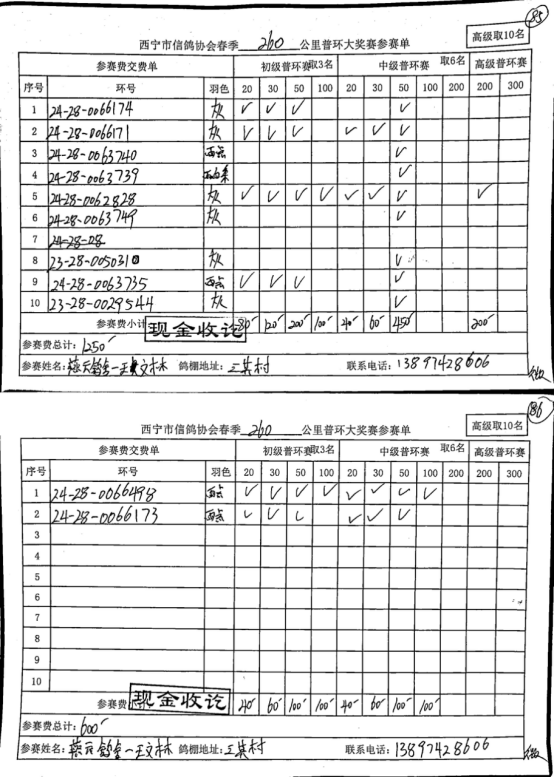 85
西宁市信鸽协会春季 260 公里普环大奖赛参赛单 高级取10名
参赛费交费单 初级普环赛取3名 中级普环赛 取6名 高级普环赛
序号 环号 羽色 20 30 50 100 20 30 50 100 200 200 300
1 24-28-0066174 灰 ✓ ✓ ✓ ✓
2 24-28-0066171 灰 ✓ ✓ ✓ ✓ ✓ ✓
3 24-28-0063740 ✓
4 24-28-0063739 ✓
5 24-28-0062828 灰 ✓ ✓ ✓ ✓ ✓ ✓ ✓ ✓
6 24-28-0063749 灰 ✓
7 24-28-08
8 23-28-0050310 灰 ✓
9 24-28-0063735 ✓ ✓ ✓ ✓
10 23-28-0029544 灰 ✓
参赛费小计 现金收讫 80 120 200 100 40 60 450 200
参赛费总计：1250
参赛姓名： 鸽棚地址：三其村 联系电话：13897428606
86
西宁市信鸽协会春季 260 公里普环大奖赛参赛单 高级取10名
参赛费交费单 初级普环赛取3名 中级普环赛 取6名 高级普环赛
序号 环号 羽色 20 30 50 100 20 30 50 100 200 200 300
1 24-28-0066498 ✓ ✓ ✓ ✓ ✓ ✓ ✓ ✓
2 24-28-0066173 ✓ ✓ ✓ ✓ ✓ ✓
3
4
5
6
7
8
9
10
参赛费 现金收讫 40 60 100 100 40 60 100 100
参赛费总计：600
参赛姓名： 鸽棚地址：三其村 联系电话：13897428606